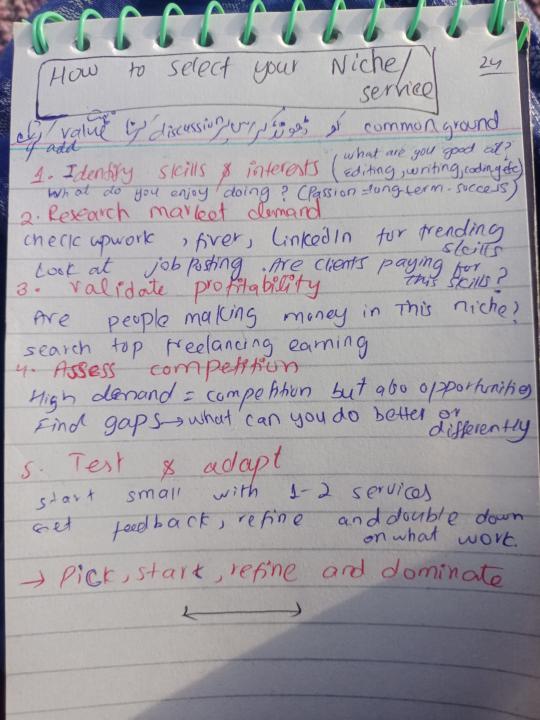 How to select your Niche/
service
24
value discussion common ground
add
1. Identify skills & interests (what are you good at?
Editing, writing, coding etc)
What do you enjoy doing? (Passion = long term. success)
2. Research market demand
check upwork, fiver, LinkedIn for trending
skills
Look at job posting. Are clients paying for
this skills?
3. validate profitability
Are people making money in this niche?
search top freelancing earning
4. Assess competition
High demand = competition but also opportunities
Find gaps → what can you do better or
differently
5. Test & adapt
start small with 1-2 services
Get feedback, refine and double down
on what work.
→ Pick, start, refine and dominate